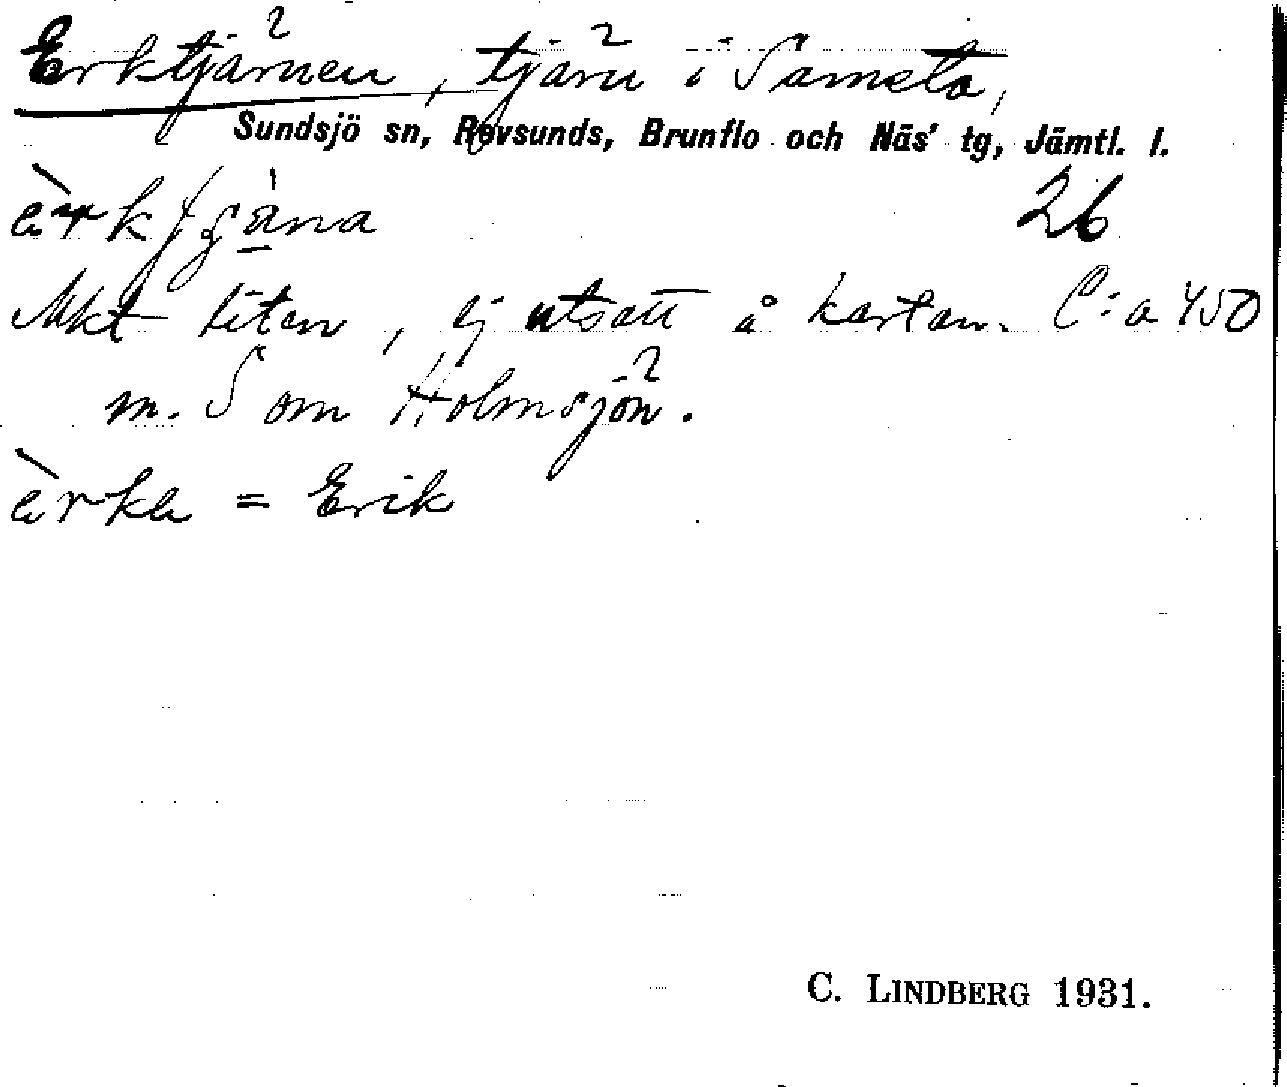 Erktjärnen, tjärn i Samsta,
Sundsjö sn, Revsunds, Brunflo och Näs' tg, Jämtl. l.
26
Mkt liten, ej utsatt å kartan. C:a 450
m. S om Holmsjön.
ärke = Erik
C. LINDBERG 1931.